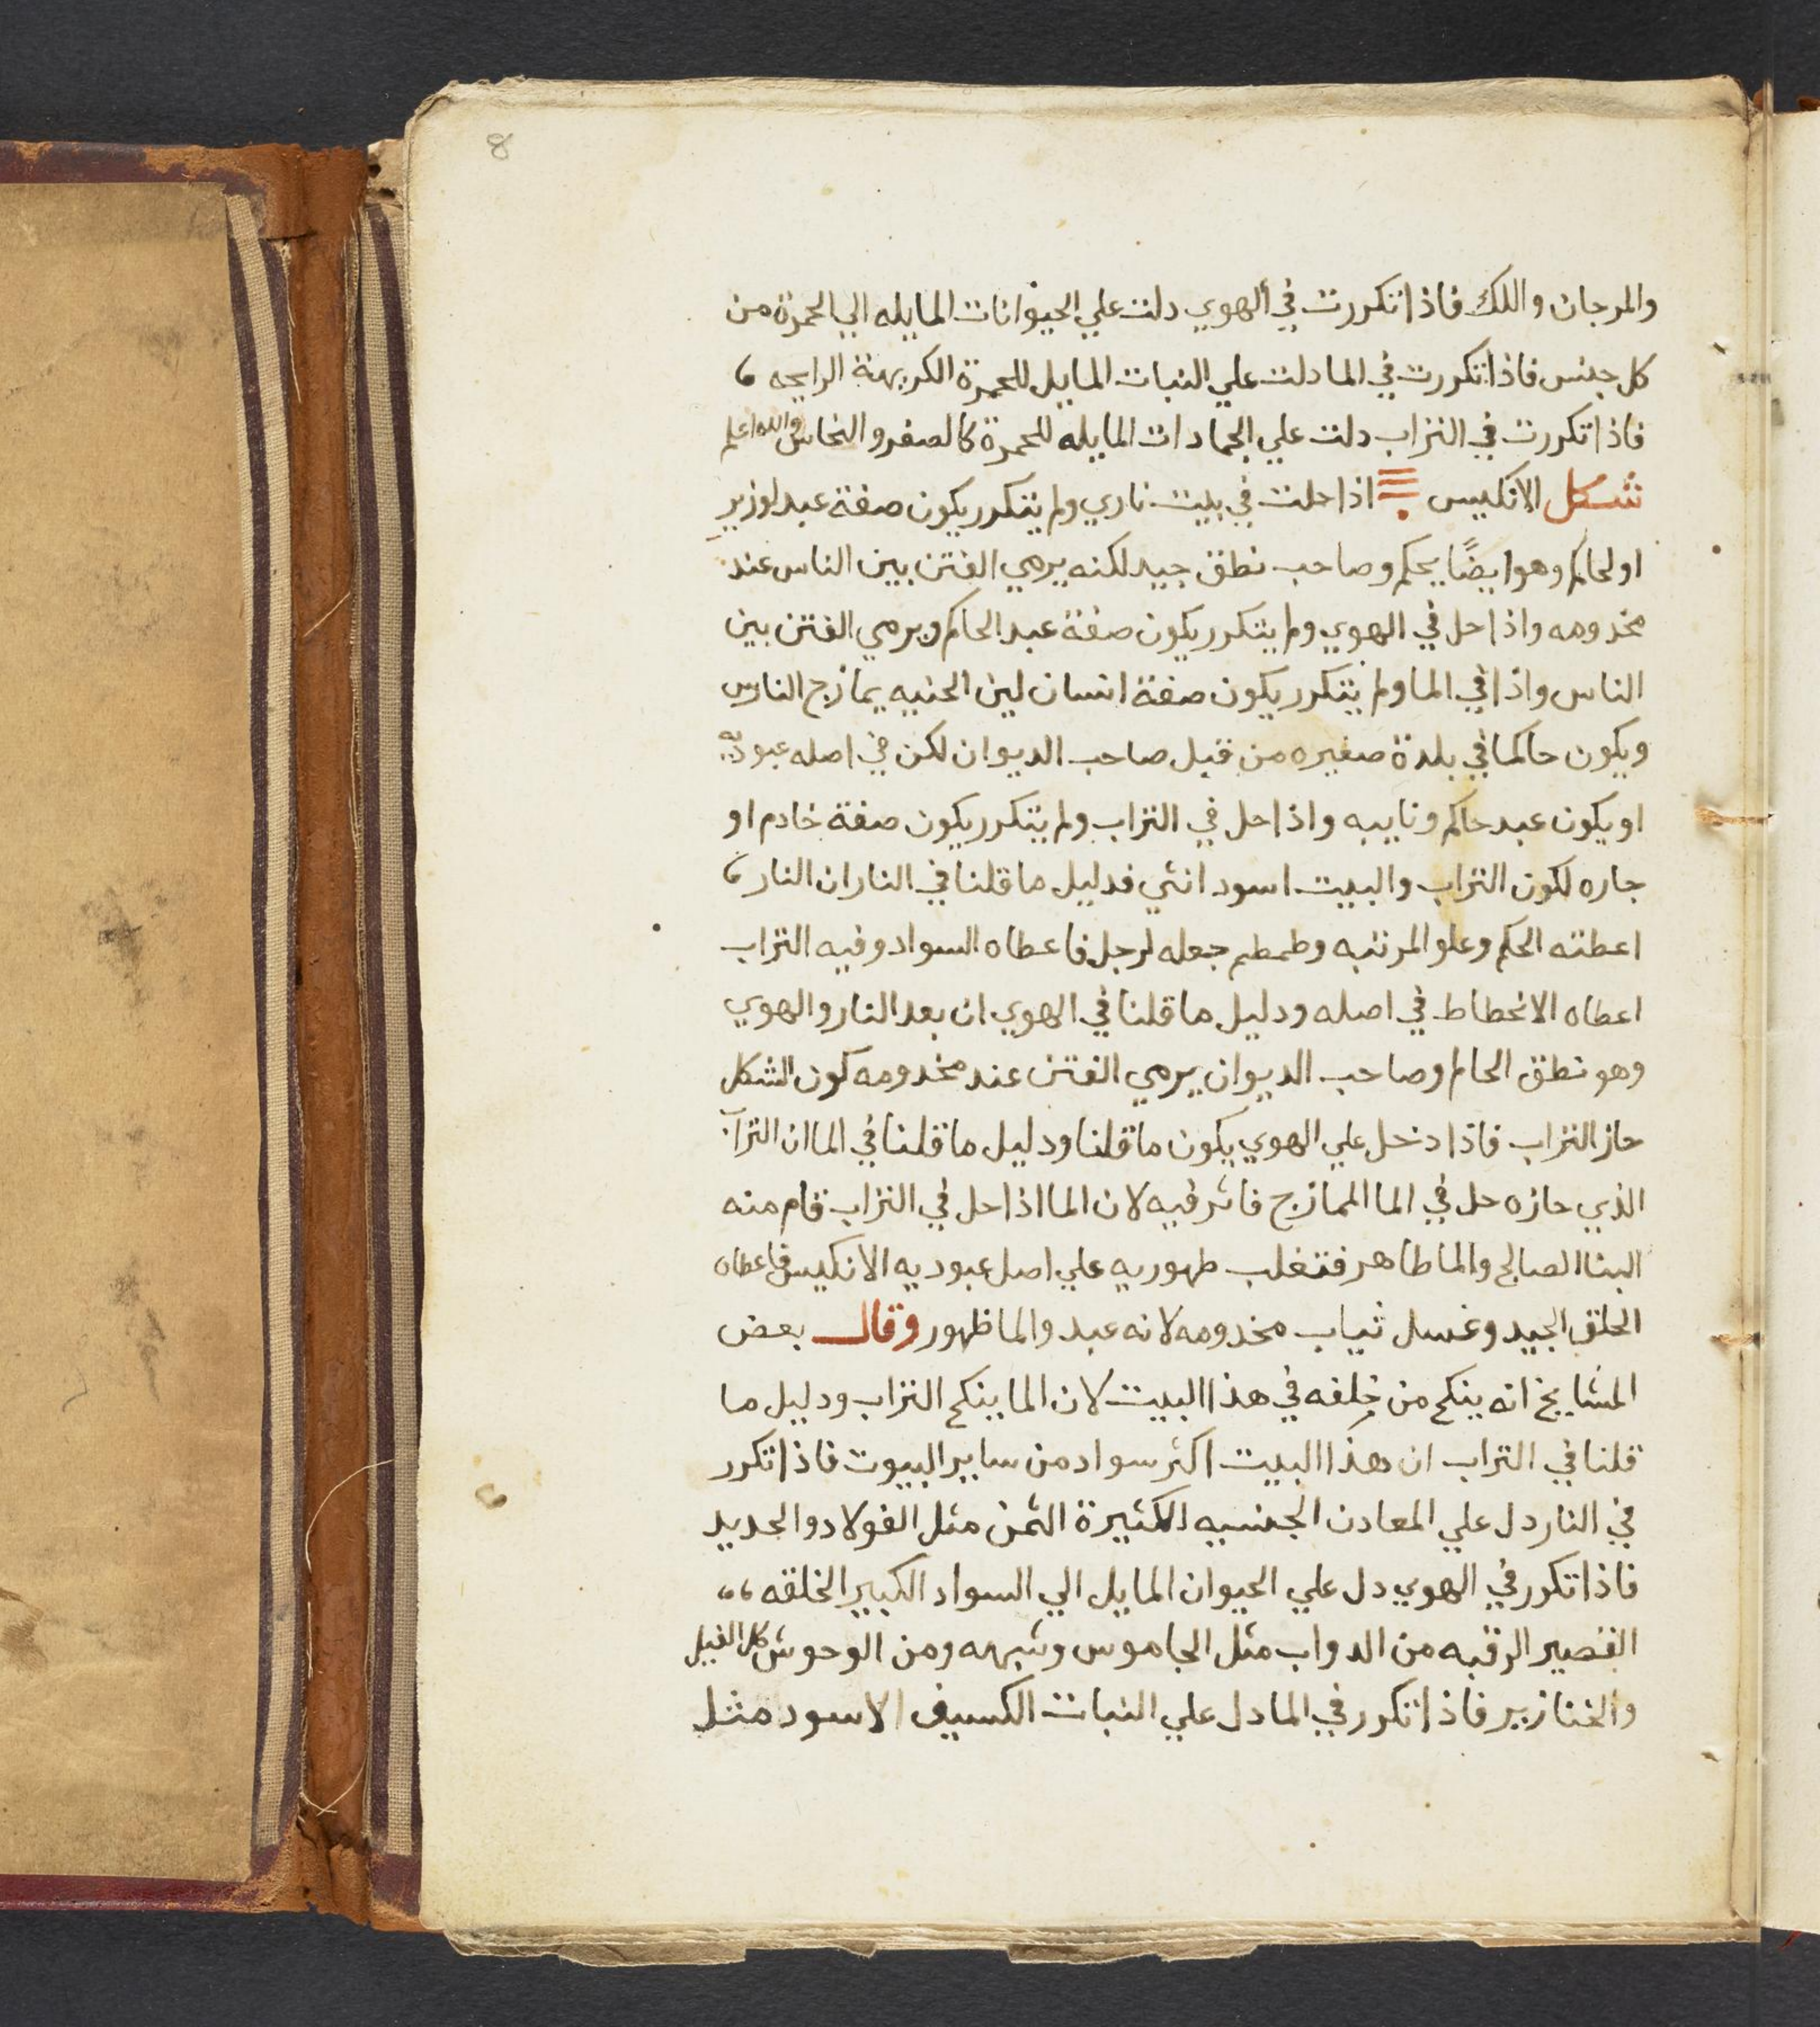 8
والمرجان واللك فاذا تكررت في الهوي دلت علي الحيوانات المايله الي الحمرة من
كل جنس فاذا تكررت في الما دلت علي النبات المايل للحمرة الكريهة الرايحه
فاذا تكررت في التراب دلت علي الجمادات المايله للحمرة كالصفر والنحاس والله اعلم
شكل الانكيس اذا حلت في بيت ناري ولم يتكرر يكون صفة عبد لوزير
او لحاكم وهو ايضًا يحكم وصاحب نطق جيد لكنه يرمي الفتن بين الناس عند
مخدومه واذا حل في الهوي ولم يتكرر يكون صفة عبد الحاكم ويرمي الفتن بين
الناس واذا في الما ولم يتكرر يكون صفة انسان لين الحنيه يمازج الناس
ويكون حاكما في بلدة صغيره من قبل صاحب الديوان لكن في اصله عبوديه
او يكون عبد حاكم ونايبه واذا حل في التراب ولم يتكرر يكون صفة خادم او
جاره لكون التراب والبيت اسود انثي فدليل ما قلنا في النار ان النار
اعطته الحكم وعلو المرتبه وطمطم جعله لرجل فاعطاه السواد وفيه التراب
اعطاه الانحطاط في اصله ودليل ما قلنا في الهوي ان بعد النار والهوي
وهو نطق الحام وصاحب الديوان يرمي الفتن عند مخدومه كون الشكل
حاز التراب فاذا دخل علي الهوي يكون ما قلنا ودليل ما قلنا في الما ان التراب
الذي حازه حل في الما الممازج فاثر فيه لان الما اذا حل في التراب قام منه
البنا الصالح والما طاهر فتغلب طهوريه علي اصل عبوديه الانكيس فاعطاه
الخلق الجيد وغسل ثياب مخدومه لانه عبد والما ظهور وقال بعض
المشايخ انه ينكح من خلفه في هذا البيت لان الما ينكح التراب ودليل ما
قلنا في التراب ان هذا البيت اكثر سواد من ساير البيوت فاذا تكرر
في النار دل علي المعادن الجنسيه الكثيرة الثمن مثل الفولاد والحديد
فاذا تكرر في الهوي دل علي الحيوان المايل الي السواد الكبير الخلقه
القصير الرقبه من الدواب مثل الجاموس وشبهه ومن الوحوش كالفيل
والخنازير فاذا تكرر في الما دل علي النبات الكسيف الاسود مثل